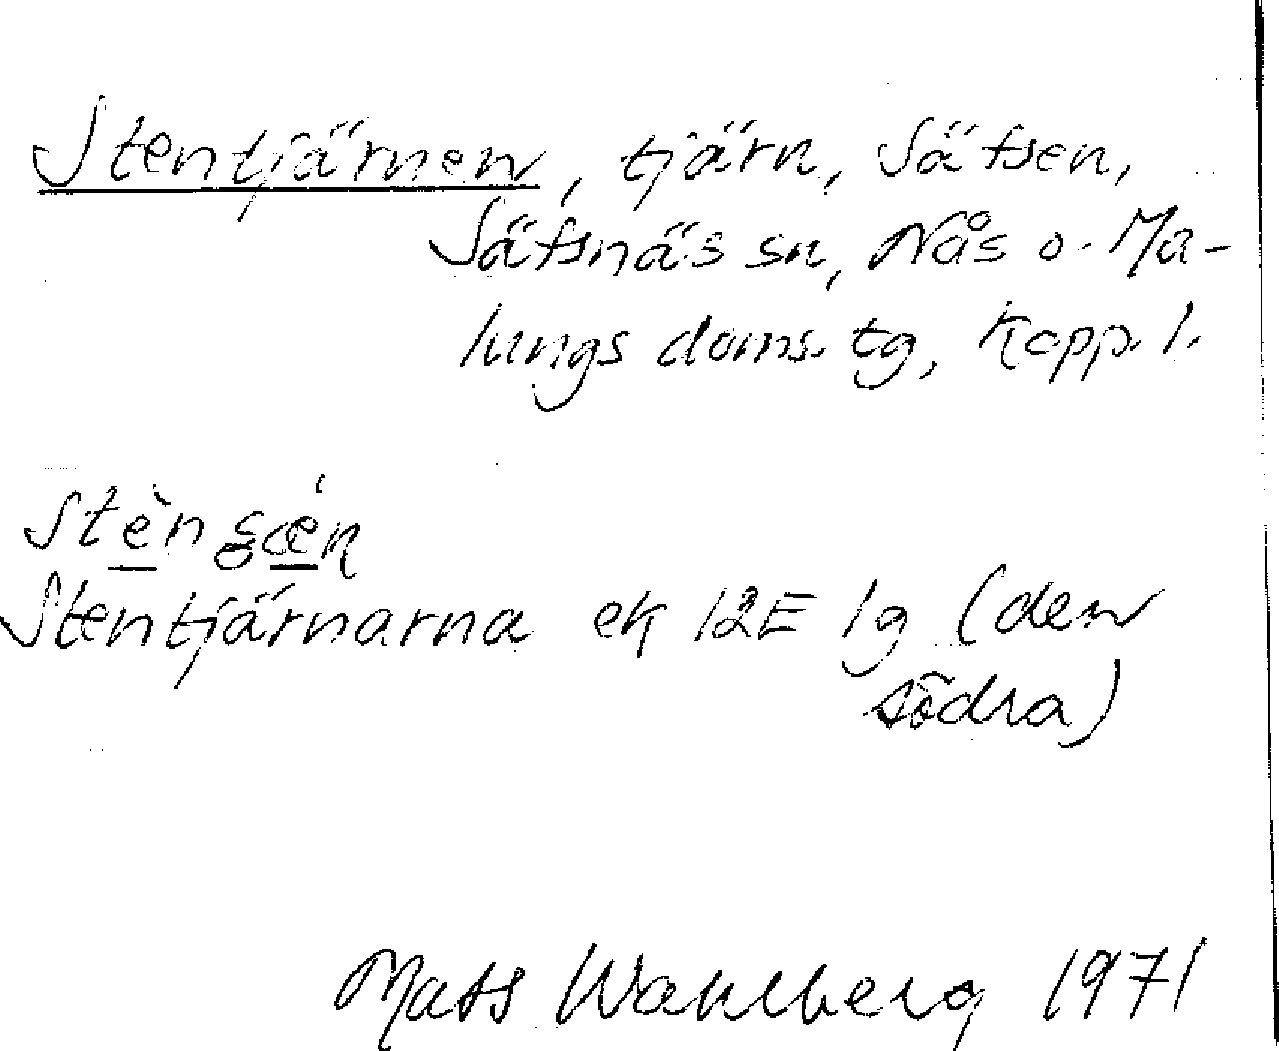 Stentjärnen, tjärn, Säfsen,
Säfsnäs sn, Nås o. Ma-
lungs doms. tg, Kopp. l.
Stentjärnarna ek 12E 1g (den
södra)
Mats Wahlberg 1971